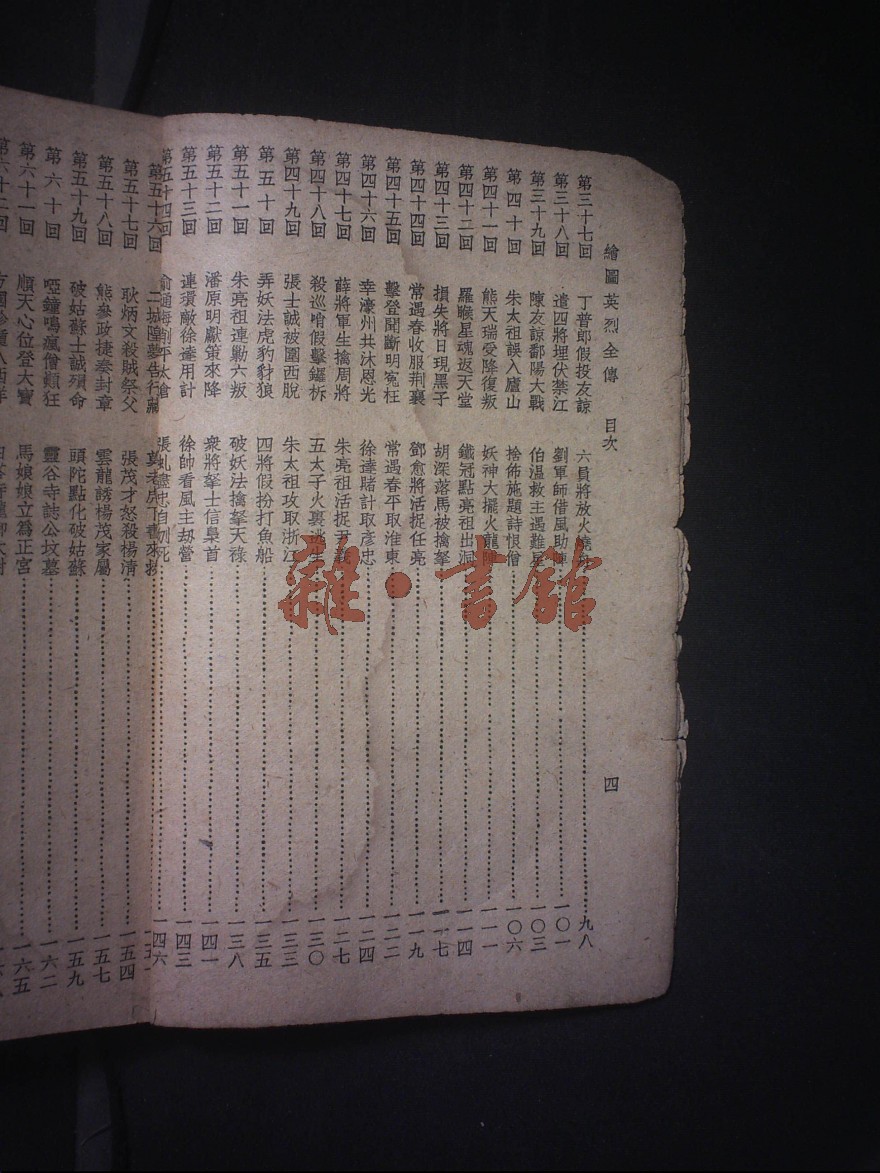 繪圖英烈全傳 目次 四
第三十七回 丁普郎假投友諒 六員將放火燒 九八
第三十八回 遣四將埋伏禁江 劉軍師借風助陣 一〇一
第三十九回 陳友諒鄱陽大戰 伯溫救主遇難星 一〇三
第四十回 朱太祖誤入廬山 捨佈施題詩恨僧 一〇六
第四十一回 熊天瑞受降復叛 妖神大擺火龍陣 一一一
第四十二回 羅睺星魂返天堂 鐵冠點亮祖出洞 一一四
第四十三回 損失將日現黑子 胡深落馬被擒拏 一一七
第四十四回 常遇春收服荆襄 鄧愈將活捉任亮 一一九
第四十五回 擊登聞斷明寃枉 常遇春平取淮東 一二二
第四十六回 幸濠州共沐恩光 徐達賭計取彥忠 一二四
第四十七回 薛將軍生擒周將 朱亮祖活捉尹義 一二七
第四十八回 殺巡哨假擊鑼柝 五太子火裏逃生 一三〇
第四十九回 張士誠被圍西脫 朱太祖攻取浙江 一三三
第五十回 弄妖法虎豹豺狼 四將假扮打魚船 一三五
第五十一回 朱亮祖連勦六叛 破妖法擒拏天祿 一三八
第五十二回 潘原明獻策來降 衆將拏士信梟首 一四一
第五十三回 連環敵徐達用計 徐師看風主劫營 一四三
第五十四回 俞通海削平太倉 張虬盡忠自刎死 一四六
第五十六回 二城隍夢告行藏
第五十七回 耿炳文殺賊祭父 張茂才怒殺楊清 一五四
第五十八回 熊參政捷奏封章 雲龍誘楊茂家屬 一五七
第五十九回 破姑蘇士誠殞命 頭陀點化破姑蘇 一五九
第六十回 啞鐘鳴瘋僧顛狂 靈谷寺誌公坟墓 一六二
第六十一回 順天心位登大寶 馬娘娘立爲正宮 一六五
第六十二回
雜·書館